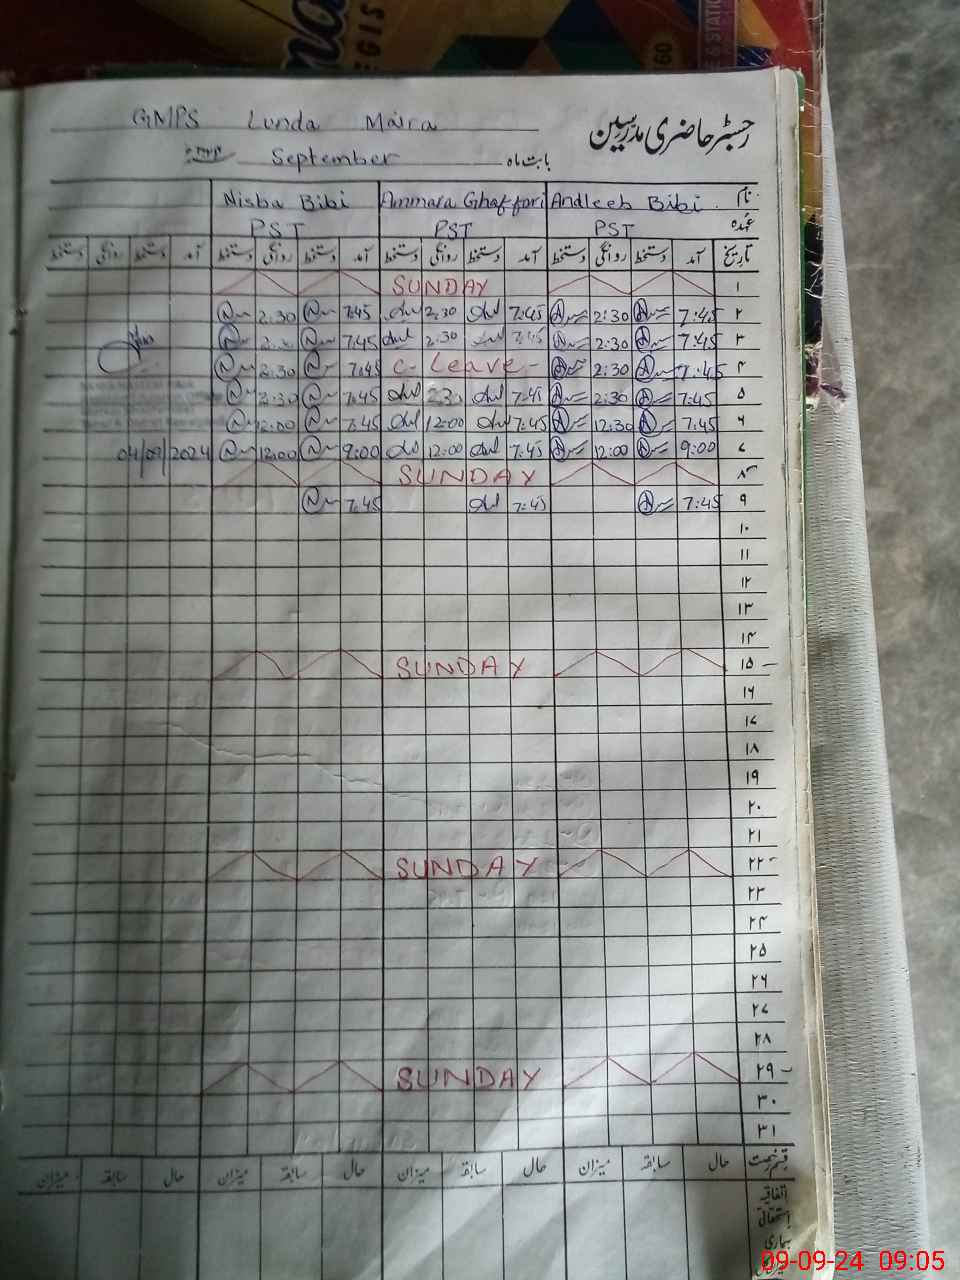 GMPS Lunda Maira
رجسٹر حاضری مدرسین
بابت ماہ September
نام Andleeb Bibi Ammara Ghaffori Nisba Bibi
عہدہ PST PST PST
تاریخ آمد دستخط روانگی دستخط آمد دستخط روانگی دستخط آمد دستخط روانگی دستخط آمد دستخط روانگی دستخط
۱ SUNDAY
۲ 7:45 2:30 7:45 2:30 7:45 2:30
۳ 7:45 2:30 7:45 2:30 7:45 2:30
۴ 7:45 2:30 C- Leave - 7:45 2:30
۵ 7:45 2:30 7:45 2:30 7:45 2:30
۶ 7:45 12:30 7:45 12:00 7:45 12:00
۷ 9:00 12:00 7:45 12:00 9:00 12:00 04/09/2024
۸ SUNDAY
۹ 7:45 7:45 7:45
۱۰
۱۱
۱۲
۱۳
۱۴
۱۵ SUNDAY
۱۶
۱۷
۱۸
۱۹
۲۰
۲۱
۲۲ SUNDAY
۲۳
۲۴
۲۵
۲۶
۲۷
۲۸
۲۹ SUNDAY
۳۰
۳۱
قسم رخصت حال سابقہ میزان حال سابقہ میزان حال سابقہ میزان حال سابقہ میزان
اتفاقیہ
استحقاقی
بیماری
09-09-24 09:05